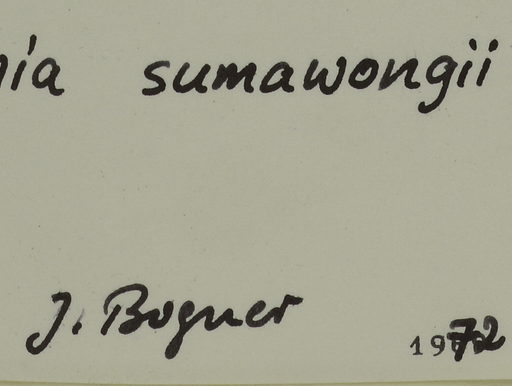 nia sumawongii
J. Bogner
1972